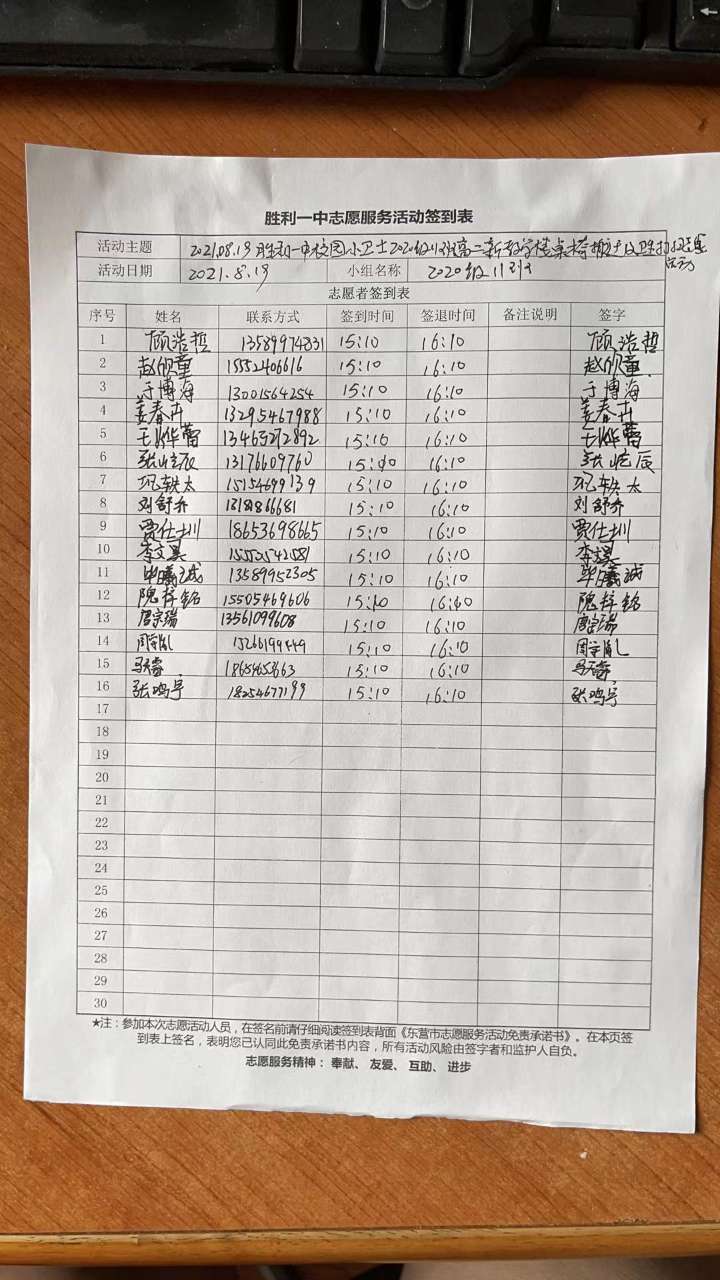 胜利一中志愿服务活动签到表
活动主题 2021.08.19胜利一中校园小卫士2020级11班高二新教学楼桌椅搬运及卫生打扫志愿活动
活动日期 2021.8.19 小组名称 2020级11班
志愿者签到表
序号 姓名 联系方式 签到时间 签退时间 备注说明 签字
1 顾浩哲 13589974831 15:10 16:10 顾浩哲
2 赵欣童 15552406616 15:10 16:10 赵欣童
3 于博海 13001564254 15:10 16:10 于博海
4 姜春卉 13295467988 15:10 16:10 姜春卉
5 王烨蕾 13465292892 15:10 16:10 王烨蕾
6 张屹辰 13176609760 15:10 16:10 张屹辰
7 巩轶太 15154699139 15:10 16:10 巩轶太
8 刘舒乔 15:10 16:10 刘舒乔
9 贾仕圳 18653698665 15:10 16:10 贾仕圳
10 李文昊 15:10 16:10 李文昊
11 毕曦诚 13589952305 15:10 16:10 毕曦诚
12 隗梓铭 15505469606 15:10 16:10 隗梓铭
13 唐宗瑞 13561099608 15:10 16:10 唐宗瑞
14 周宇胤 15:10 16:10 周宇胤
15 马天睿 15:10 16:10 马天睿
16 张鸣宇 18254677199 15:10 16:10 张鸣宇
17
18
19
20
21
22
23
24
25
26
27
28
29
30
★注：参加本次志愿活动人员，在签名前请仔细阅读签到表背面《东营市志愿服务活动免责承诺书》。在本页签
到表上签名，表明您已认同此免责承诺书内容，所有活动风险由签字者和监护人自负。
志愿服务精神：奉献、友爱、互助、进步